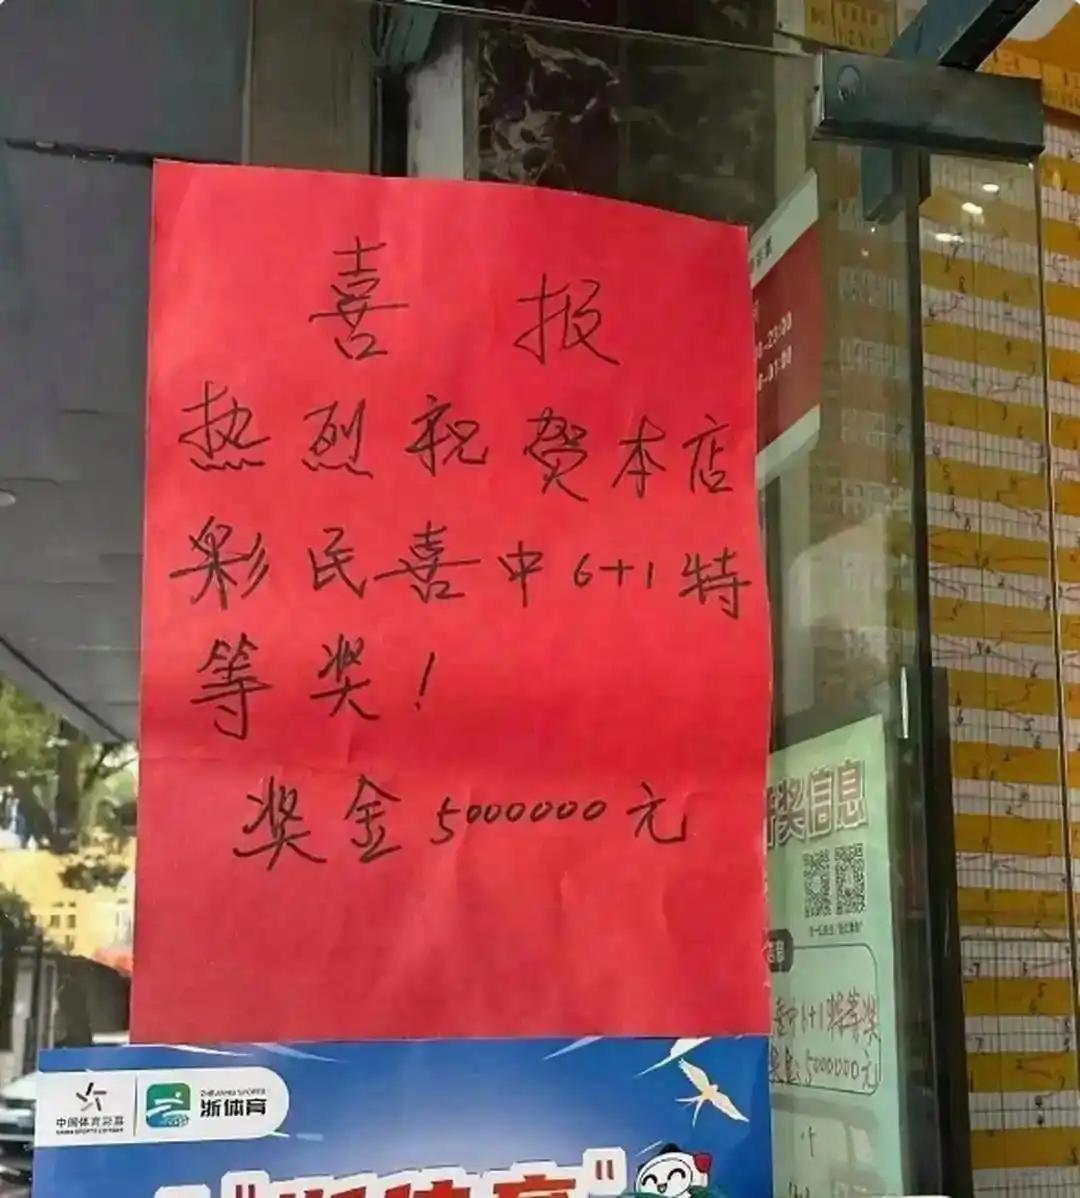 喜报
热烈祝贺本店
彩民喜中6+1特
等奖！
奖金5000000元
奖信息
喜中6+1特等奖
奖金:5000000元
中国体育彩票
CHINA SPORTS LOTTERY
ZHEJIANG SPORTS
浙体育